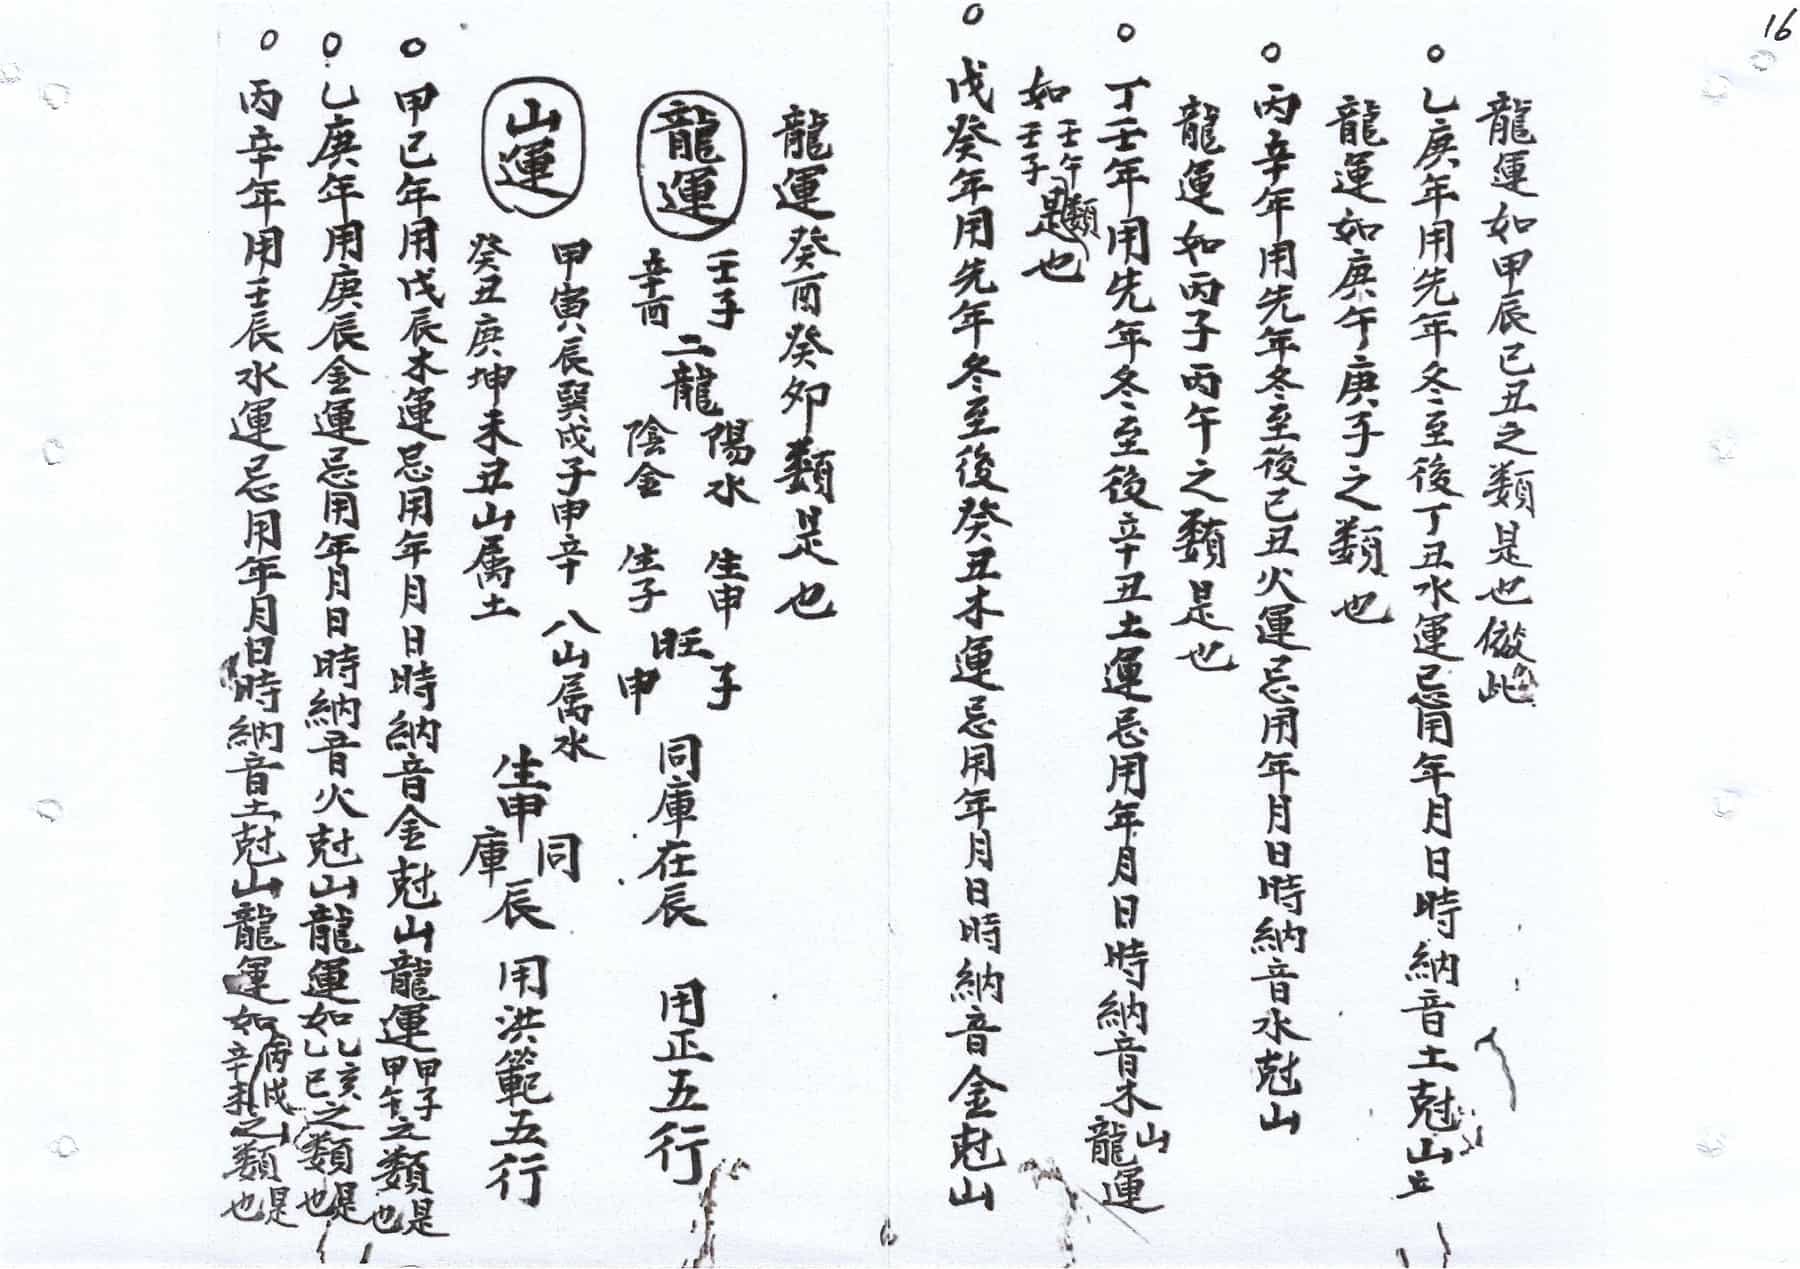 16
龍運如甲辰己丑之類是也倣此
○乙庚年用先年冬至後丁丑水運忌用年月日時納音土尅山
龍運如庚午庚子之類也
○丙辛年用先年冬至後己丑火運忌用年月日時納音水尅山
龍運如丙子丙午之類是也
○丁壬年用先年冬至後辛丑土運忌用年月日時納音木山龍運
如壬午壬子類是也
○戊癸年用先年冬至後癸丑木運忌用年月日時納音金尅山
龍運癸酉癸卯類是也
龍運 壬子辛酉二龍 陽水陰金 生申生子 旺子申 同庫在辰 用正五行
山運 甲寅辰巽戌子申辛 八山属水 癸丑庚坤未丑山属土 生申同庫辰 用洪範五行
○甲己年用戊辰木運忌用年月日時納音金尅山龍運甲子甲午之類是也
○乙庚年用庚辰金運忌用年月日時納音火尅山龍運如乙亥乙巳之類是也
○丙辛年用壬辰水運忌用年月日時納音土尅山龍運如丙戌辛未之類是也